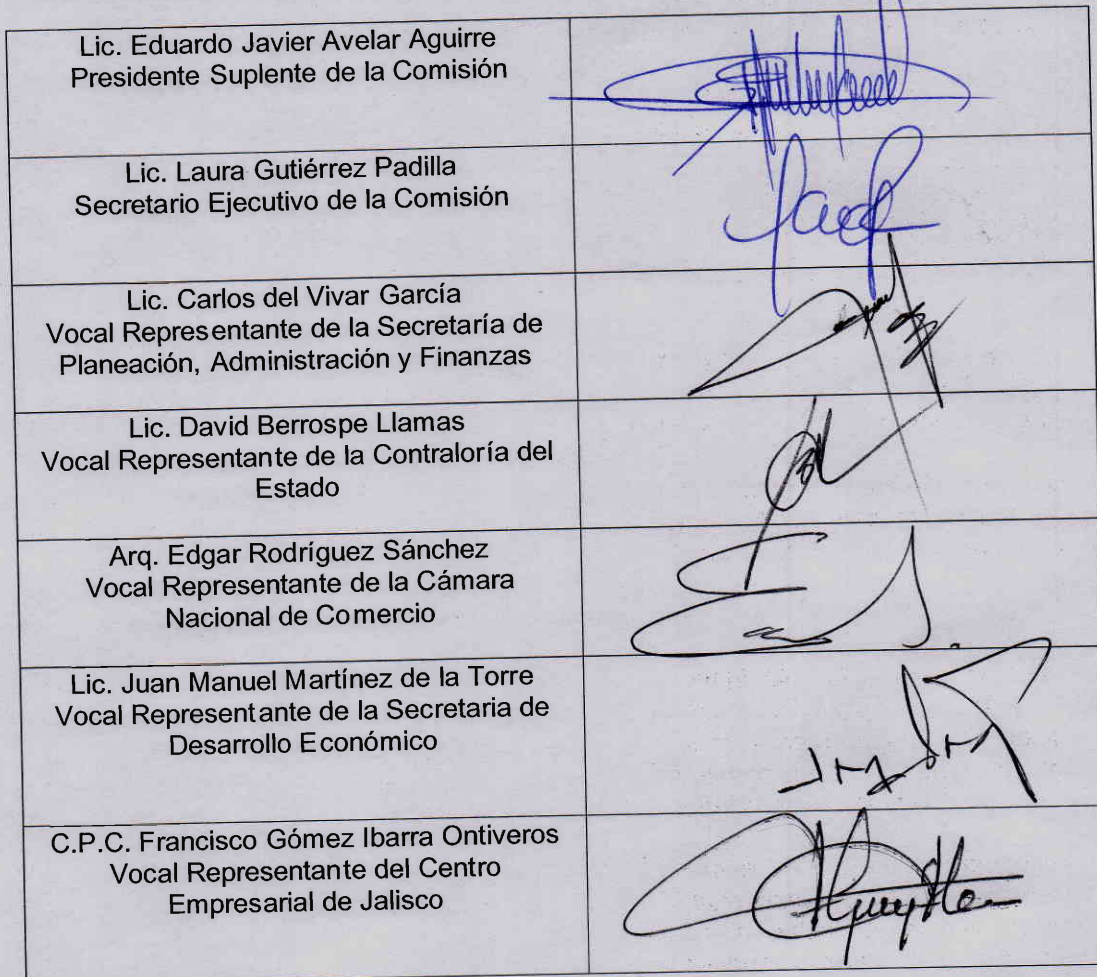 Lic. Eduardo Javier Avelar Aguirre
Presidente Suplente de la Comisión
Lic. Laura Gutiérrez Padilla
Secretario Ejecutivo de la Comisión
Lic. Carlos del Vivar García
Vocal Representante de la Secretaría de
Planeación, Administración y Finanzas
Lic. David Berrospe Llamas
Vocal Representante de la Contraloría del
Estado
Arq. Edgar Rodríguez Sánchez
Vocal Representante de la Cámara
Nacional de Comercio
Lic. Juan Manuel Martínez de la Torre
Vocal Representante de la Secretaria de
Desarrollo Económico
C.P.C. Francisco Gómez Ibarra Ontiveros
Vocal Representante del Centro
Empresarial de Jalisco